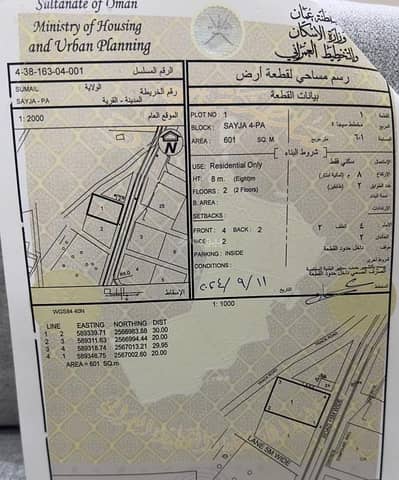 Sultanate of Oman
سلطنة عمان
Ministry of Housing
وزارة الإسكان
and Urban Planning
والتخطيط العمراني
4-38-163-04-001
الرقم المسلسل
رسم مساحي لقطعة أرض
SUMAIL
الولاية
رقم الخريطة
بيانات القطعة
SAYJA - PA
المدينة - القرية
1: 2000
الموقع العام
PLOT NO 1
القطعة
BLOCK : SAYJA 4-PA
AREA : 601 SQ. M
٦٠١
شروط البناء
USE: Residential Only
سكني فقط
HT: 8 m. (Eightm
FLOORS : 2 (2 Floors)
B. AREA :
SETBACKS :
FRONT : 4 BACK : 2
PARKING : INSIDE
CONDITIONS :
داخل حدود القطعة
٢٠٢٤/٩/١١
التاريخ
الإسقاط
WGS84 40N
1: 1000
LINE EASTING NORTHING DIST
1 2 589339.71 2566983.58 30.00
2 3 589311.63 2566994.44 20.00
3 4 589318.74 2567013.21 29.95
4 1 589346.75 2567002.60 20.00
AREA = 601 SQ.m
1
LANE 5M WIDE